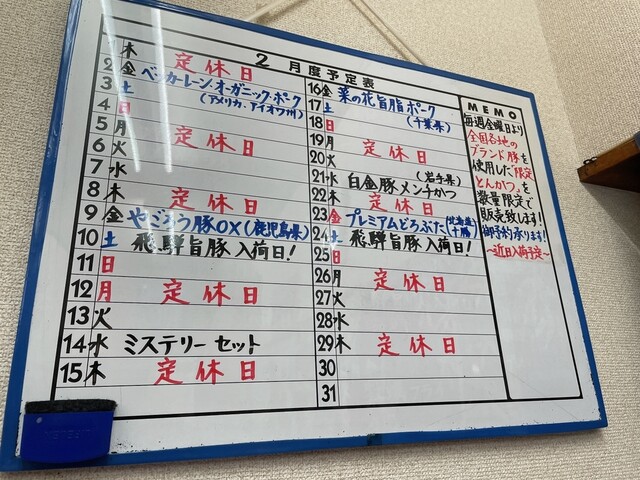 2月度予定表
1 木 定休日
2 金 ベッカーレン・オーガニック・ポーク
3 土 (アメリカ、アイオワ州)
4 日
5 月 定休日
6 火
7 水
8 木 定休日
9 金 やごろう豚OX(鹿児島県)
10 土 飛騨旨豚入荷日!
11 日
12 月 定休日
13 火
14 水 ミステリーセット
15 木 定休日
16 金 菜の花旨脂ポーク
17 土 (千葉県)
18 日
19 月 定休日
20 火
21 水 白金豚メンチかつ (岩手県)
22 木 定休日
23 金 プレミアムどろぶた(北海道十勝)
24 土 飛騨旨豚入荷日!
25 日
26 月 定休日
27 火
28 水
29 木 定休日
30
31
MEMO
毎週金曜日より
全国各地の
ブランド豚を
使用した「限定
とんかつ」を
数量限定で
販売致します!
御予約承ります!
~近日入荷予定~